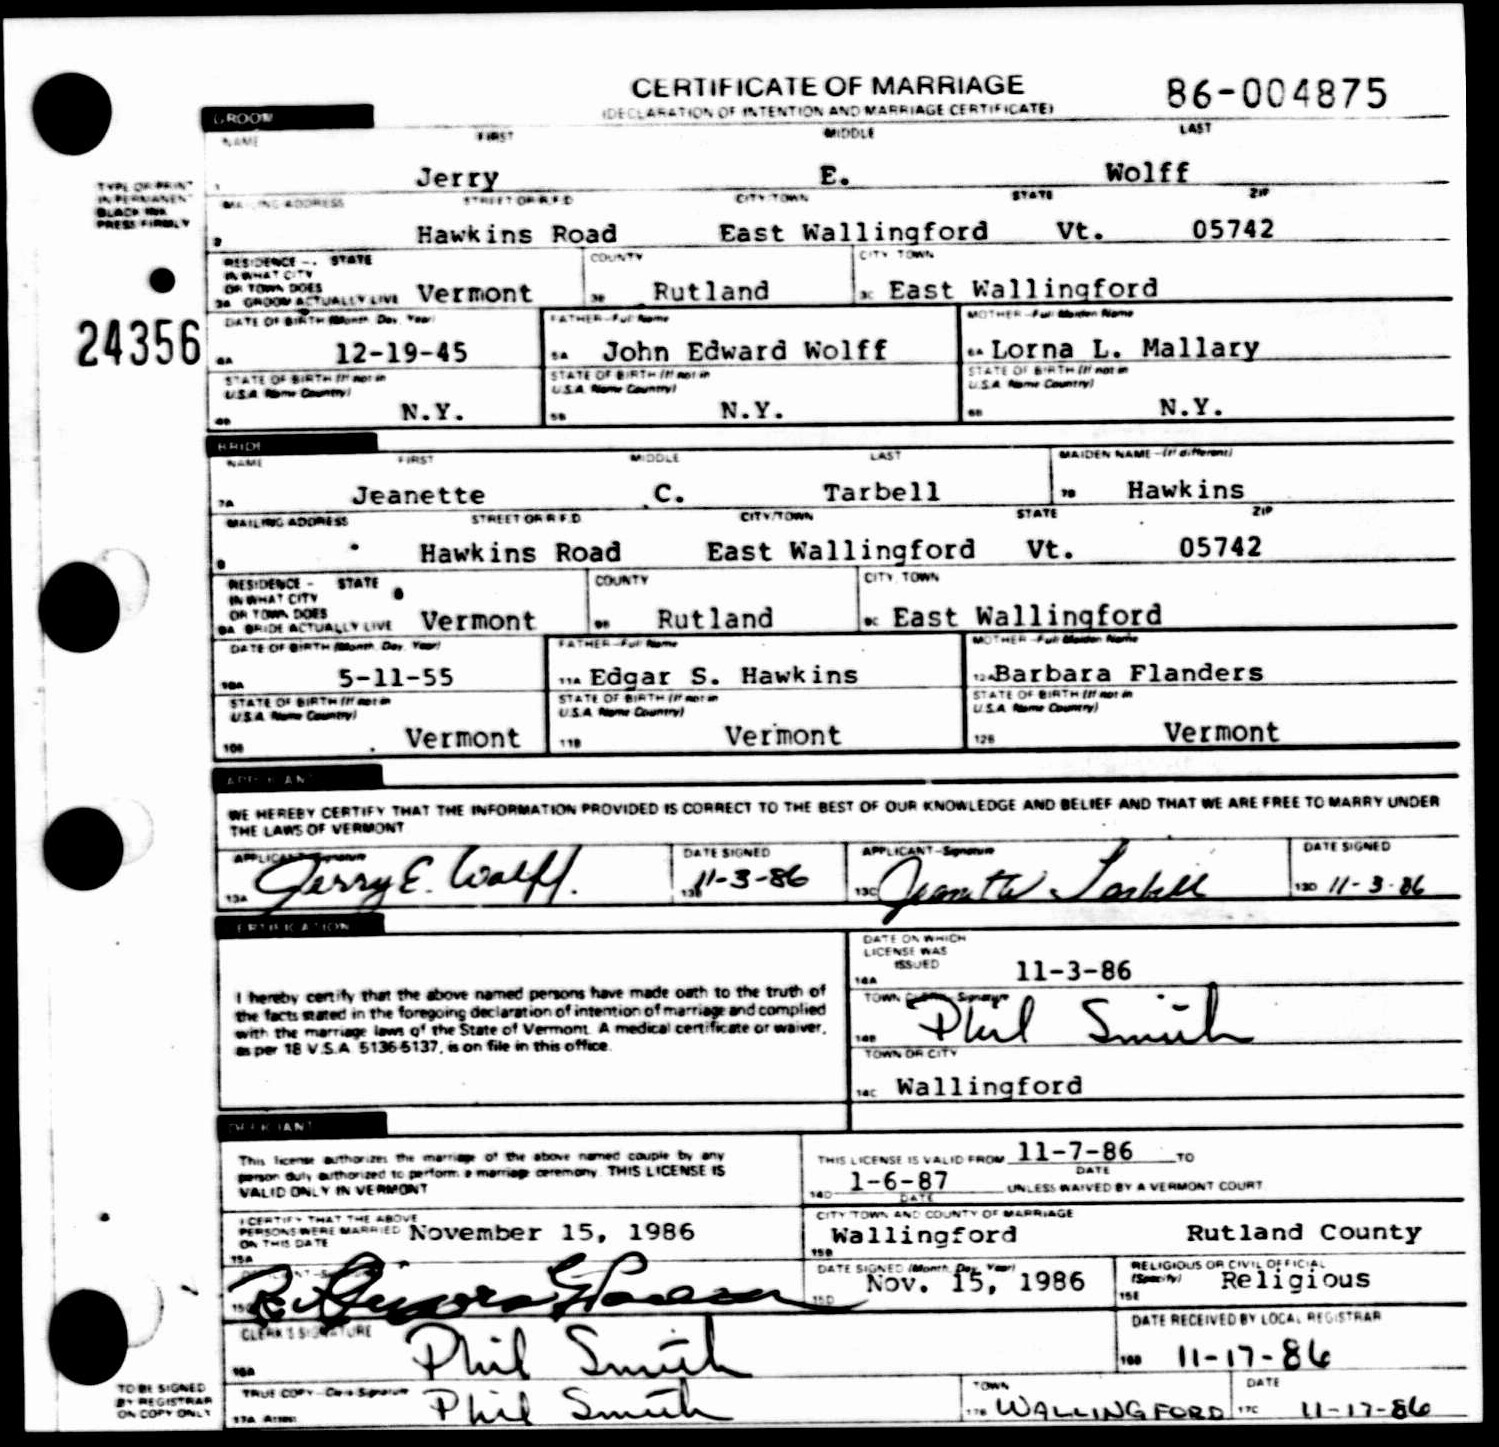 CERTIFICATE OF MARRIAGE
86-004875
(DECLARATION OF INTENTION AND MARRIAGE CERTIFICATE)
GROOM
NAME FIRST MIDDLE LAST
1 Jerry E. Wolff
TYPE OR PRINT
IN PERMANENT
BLACK INK
PRESS FIRMLY
MAILING ADDRESS STREET OR R.F.D CITY/TOWN STATE ZIP
2 Hawkins Road East Wallingford Vt. 05742
RESIDENCE - STATE COUNTY CITY TOWN
IN WHAT CITY
OR TOWN DOES
3A GROOM ACTUALLY LIVE Vermont 3B Rutland 3C East Wallingford
24356
DATE OF BIRTH (Month, Day, Year) FATHER-Full Name MOTHER-Full Maiden Name
4A 12-19-45 5A John Edward Wolff 6A Lorna L. Mallary
STATE OF BIRTH (If not in STATE OF BIRTH (If not in STATE OF BIRTH (If not in
U.S.A. Name Country) U.S.A. Name Country) U.S.A. Name Country)
4B N.Y. 5B N.Y. 6B N.Y.
BRIDE
NAME FIRST MIDDLE LAST MAIDEN NAME-(If different)
7A Jeanette C. Tarbell 7B Hawkins
MAILING ADDRESS STREET OR R.F.D CITY/TOWN STATE ZIP
8 Hawkins Road East Wallingford Vt. 05742
RESIDENCE - STATE COUNTY CITY, TOWN
IN WHAT CITY
OR TOWN DOES
9A BRIDE ACTUALLY LIVE Vermont 9B Rutland 9C East Wallingford
DATE OF BIRTH (Month, Day, Year) FATHER-Full Name MOTHER-Full Maiden Name
10A 5-11-55 11A Edgar S. Hawkins 12A Barbara Flanders
STATE OF BIRTH (If not in STATE OF BIRTH (If not in STATE OF BIRTH (If not in
U.S.A. Name Country) U.S.A. Name Country) U.S.A. Name Country)
10B Vermont 11B Vermont 12B Vermont
APPLICANT
WE HEREBY CERTIFY THAT THE INFORMATION PROVIDED IS CORRECT TO THE BEST OF OUR KNOWLEDGE AND BELIEF AND THAT WE ARE FREE TO MARRY UNDER
THE LAWS OF VERMONT
APPLICANT-Signature DATE SIGNED APPLICANT-Signature DATE SIGNED
13A Jerry E. Wolff. 13B 11-3-86 13C Jeanette Tarbell 13D 11-3-86
CERTIFICATION
DATE ON WHICH
LICENSE WAS
ISSUED
14A 11-3-86
I hereby certify that the above named persons have made oath to the truth of
the facts stated in the foregoing declaration of intention of marriage and complied
with the marriage laws of the State of Vermont. A medical certificate or waiver,
as per 18 V.S.A. 5136-5137, is on file in this office.
TOWN CLERK Signature
14B Phil Smith
TOWN OR CITY
14C Wallingford
OFFICIANT
This license authorizes the marriage of the above named couple by any
person duly authorized to perform a marriage ceremony. THIS LICENSE IS
VALID ONLY IN VERMONT
THIS LICENSE IS VALID FROM 11-7-86 TO
DATE
14D 1-6-87 UNLESS WAIVED BY A VERMONT COURT
DATE
I CERTIFY THAT THE ABOVE
PERSONS WERE MARRIED November 15, 1986
ON THIS DATE
15A
CITY TOWN AND COUNTY OF MARRIAGE
15B Wallingford Rutland County
OFFICIANT-
15C
DATE SIGNED (Month, Day, Year)
15D Nov. 15, 1986
RELIGIOUS OR CIVIL OFFICIAL
(Specify) Religious
15E
CLERK'S SIGNATURE
16A Phil Smith
DATE RECEIVED BY LOCAL REGISTRAR
16B 11-17-86
TO BE SIGNED
BY REGISTRAR
ON COPY ONLY
TRUE COPY-Clerk Signature TOWN DATE
17A Attest: Phil Smith 17B WALLINGFORD 17C 11-17-86